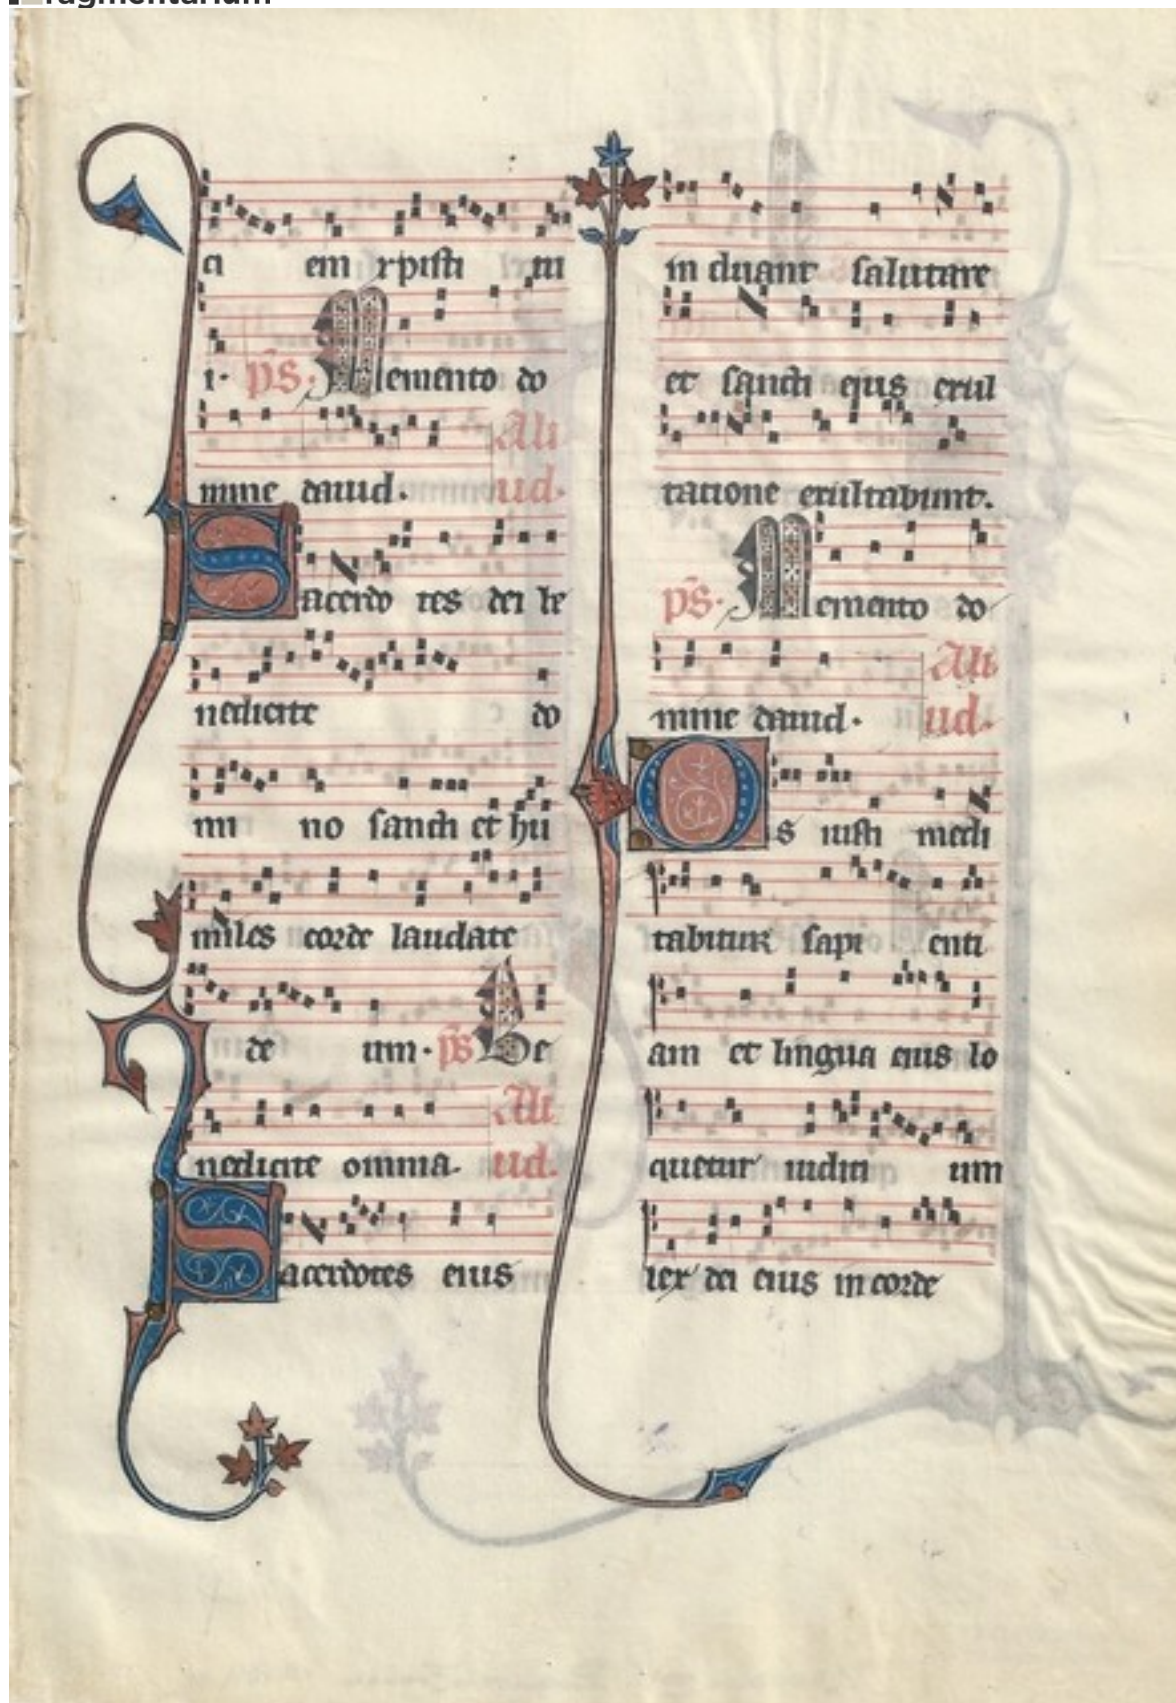 ragmentarium
ci em xpisti tu
i. ps. Memento do
mine dauid. Ali
ud.
Sacerdo tes dei be
nedicite do
mi no sancti et hu
miles corde laudate
de um. ps Be
nedicite omnia. Ali
ud.
Sacerdotes eius
induant salutare
et sancti eius exul
tacione exultabunt.
ps. Memento do
mine dauid. Ali
ud.
Os iusti medi
tabitur sapi enti
am et lingua eius lo
quetur iudici um
lex dei eius in corde